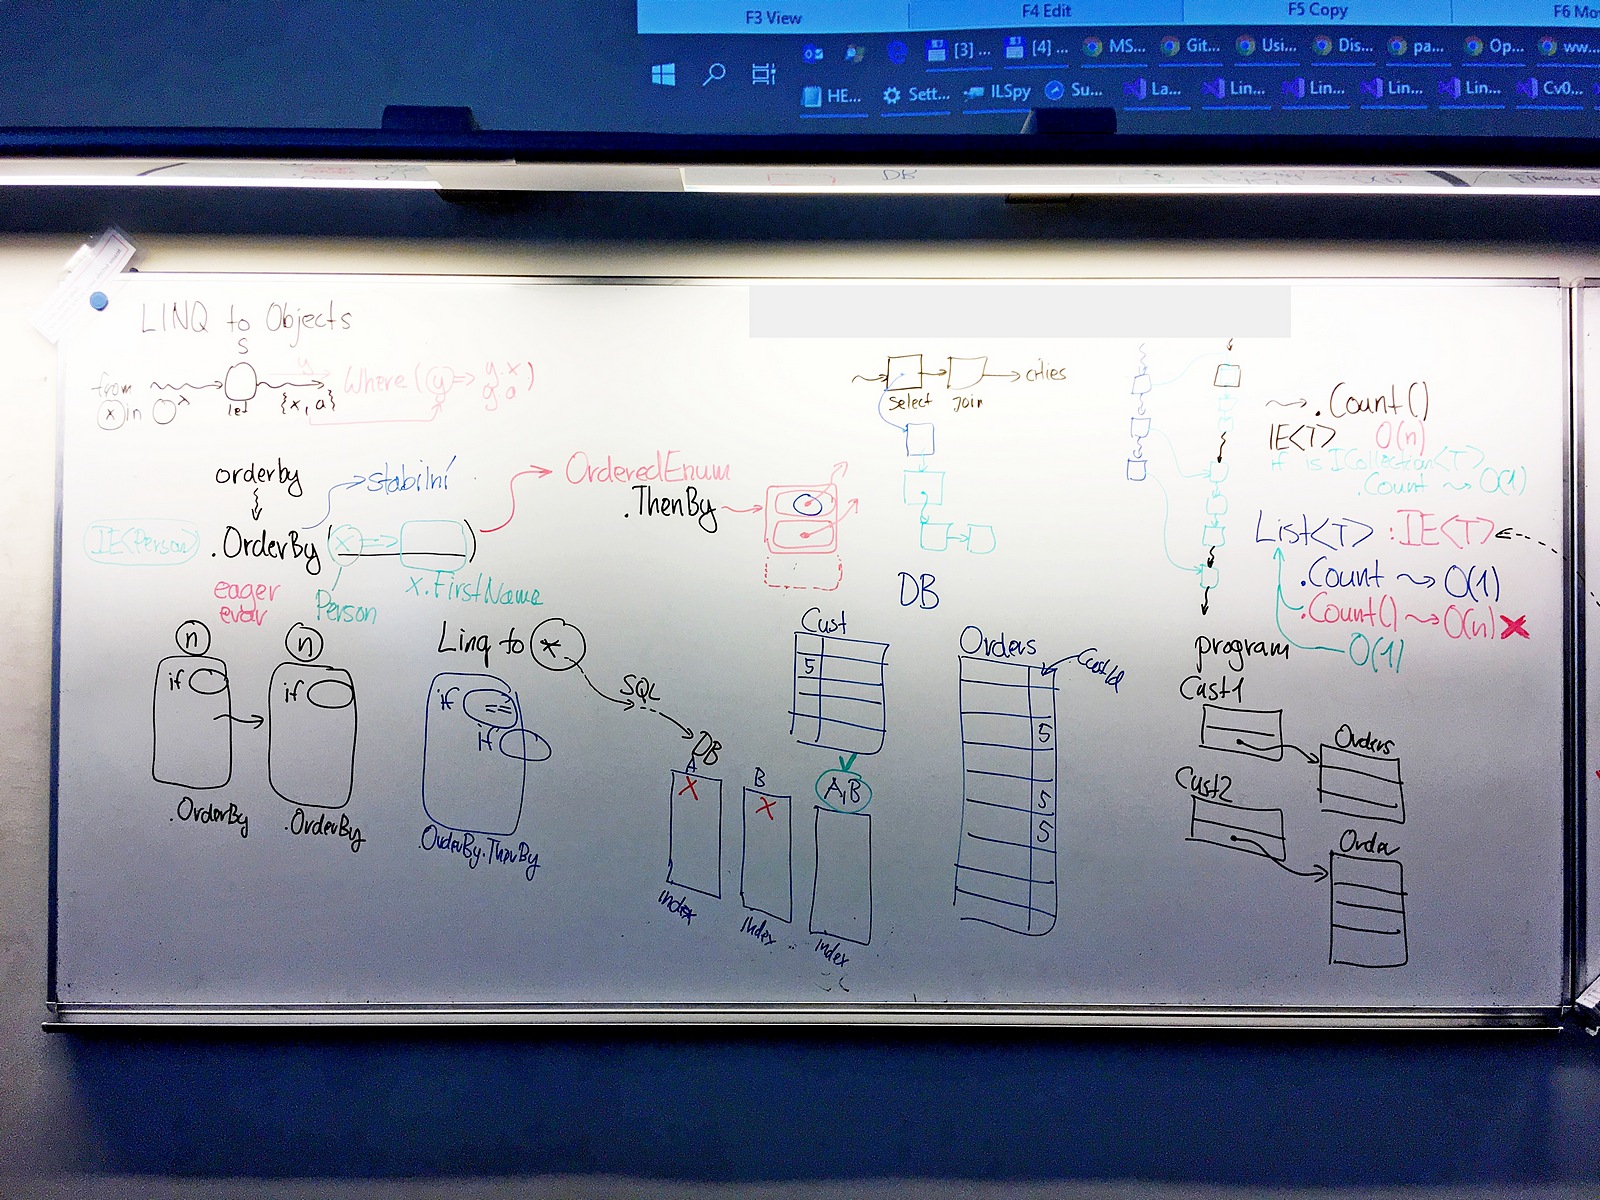 F3 View
F4 Edit
F5 Copy
F6 Mo
[3] ...
[4] ...
MS...
Git...
Usi...
Dis...
pa...
Op...
ww...
HE...
Sett...
ILSpy
Su...
La...
Lin...
Lin...
Lin...
Lin...
Cv0...
DB
LINQ to Objects
S
from
x in
let
y
{x, a}
Where (y => y.x
y.a)
orderby
stabilní
IE<Person>
.OrderBy (x => )
eager
Person
x.FirstName
OrderedEnum
.ThenBy
select
join
cities
.Count()
IE<T>
O(n)
if is ICollection<T>
.Count ~> O(1)
List<T> : IE<T>
.Count ~> O(1)
.Count() ~> O(n) X
O(1)
n
n
if
if
.OrderBy
.OrderBy
Linq to *
if ==
if
.OrderBy.ThenBy
SQL
DB
A
X
index
B
X
index
A,B
index
DB
Cust
5
Orders
CustId
5
5
5
program
Cust1
Orders
Cust2
Order